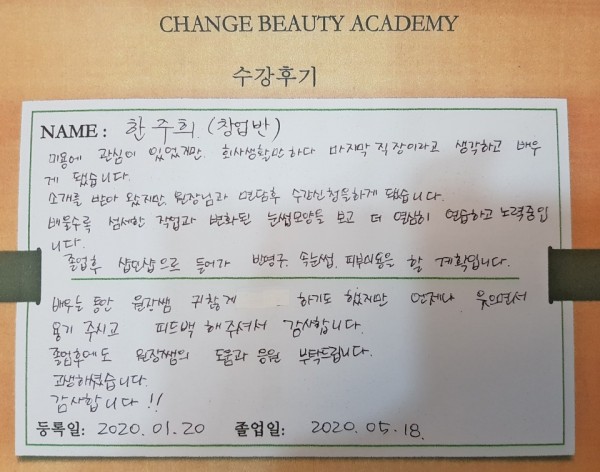 CHANGE BEAUTY ACADEMY
수강후기
NAME : 한주희 (창업반)
미용에 관심이 있었지만. 회사생활만하다 마지막 직장이라고 생각하고 배우
게 됐습니다.
소개를 받아 왔지만, 원장님과 면담후 수강신청을하게 됐습니다.
배울수록 섬세한 작업과 변화된 눈썹모양들 보고 더 열심히 연습하고 노력중입
니다.
졸업후 샵인샵으로 들어가 반영구, 속눈썹, 피부미용은 할 계획입니다.
배우는 동안 원장쌤 귀찮게 하기도 했지만 언제나 웃으면서
용기 주시고 피드백 해주셔서 감사합니다.
졸업후에도 원장쌤의 도움과 응원 부탁드립니다.
고생하셨습니다.
감사합니다 !!
등록일: 2020. 01. 20 졸업일: 2020. 05. 18.